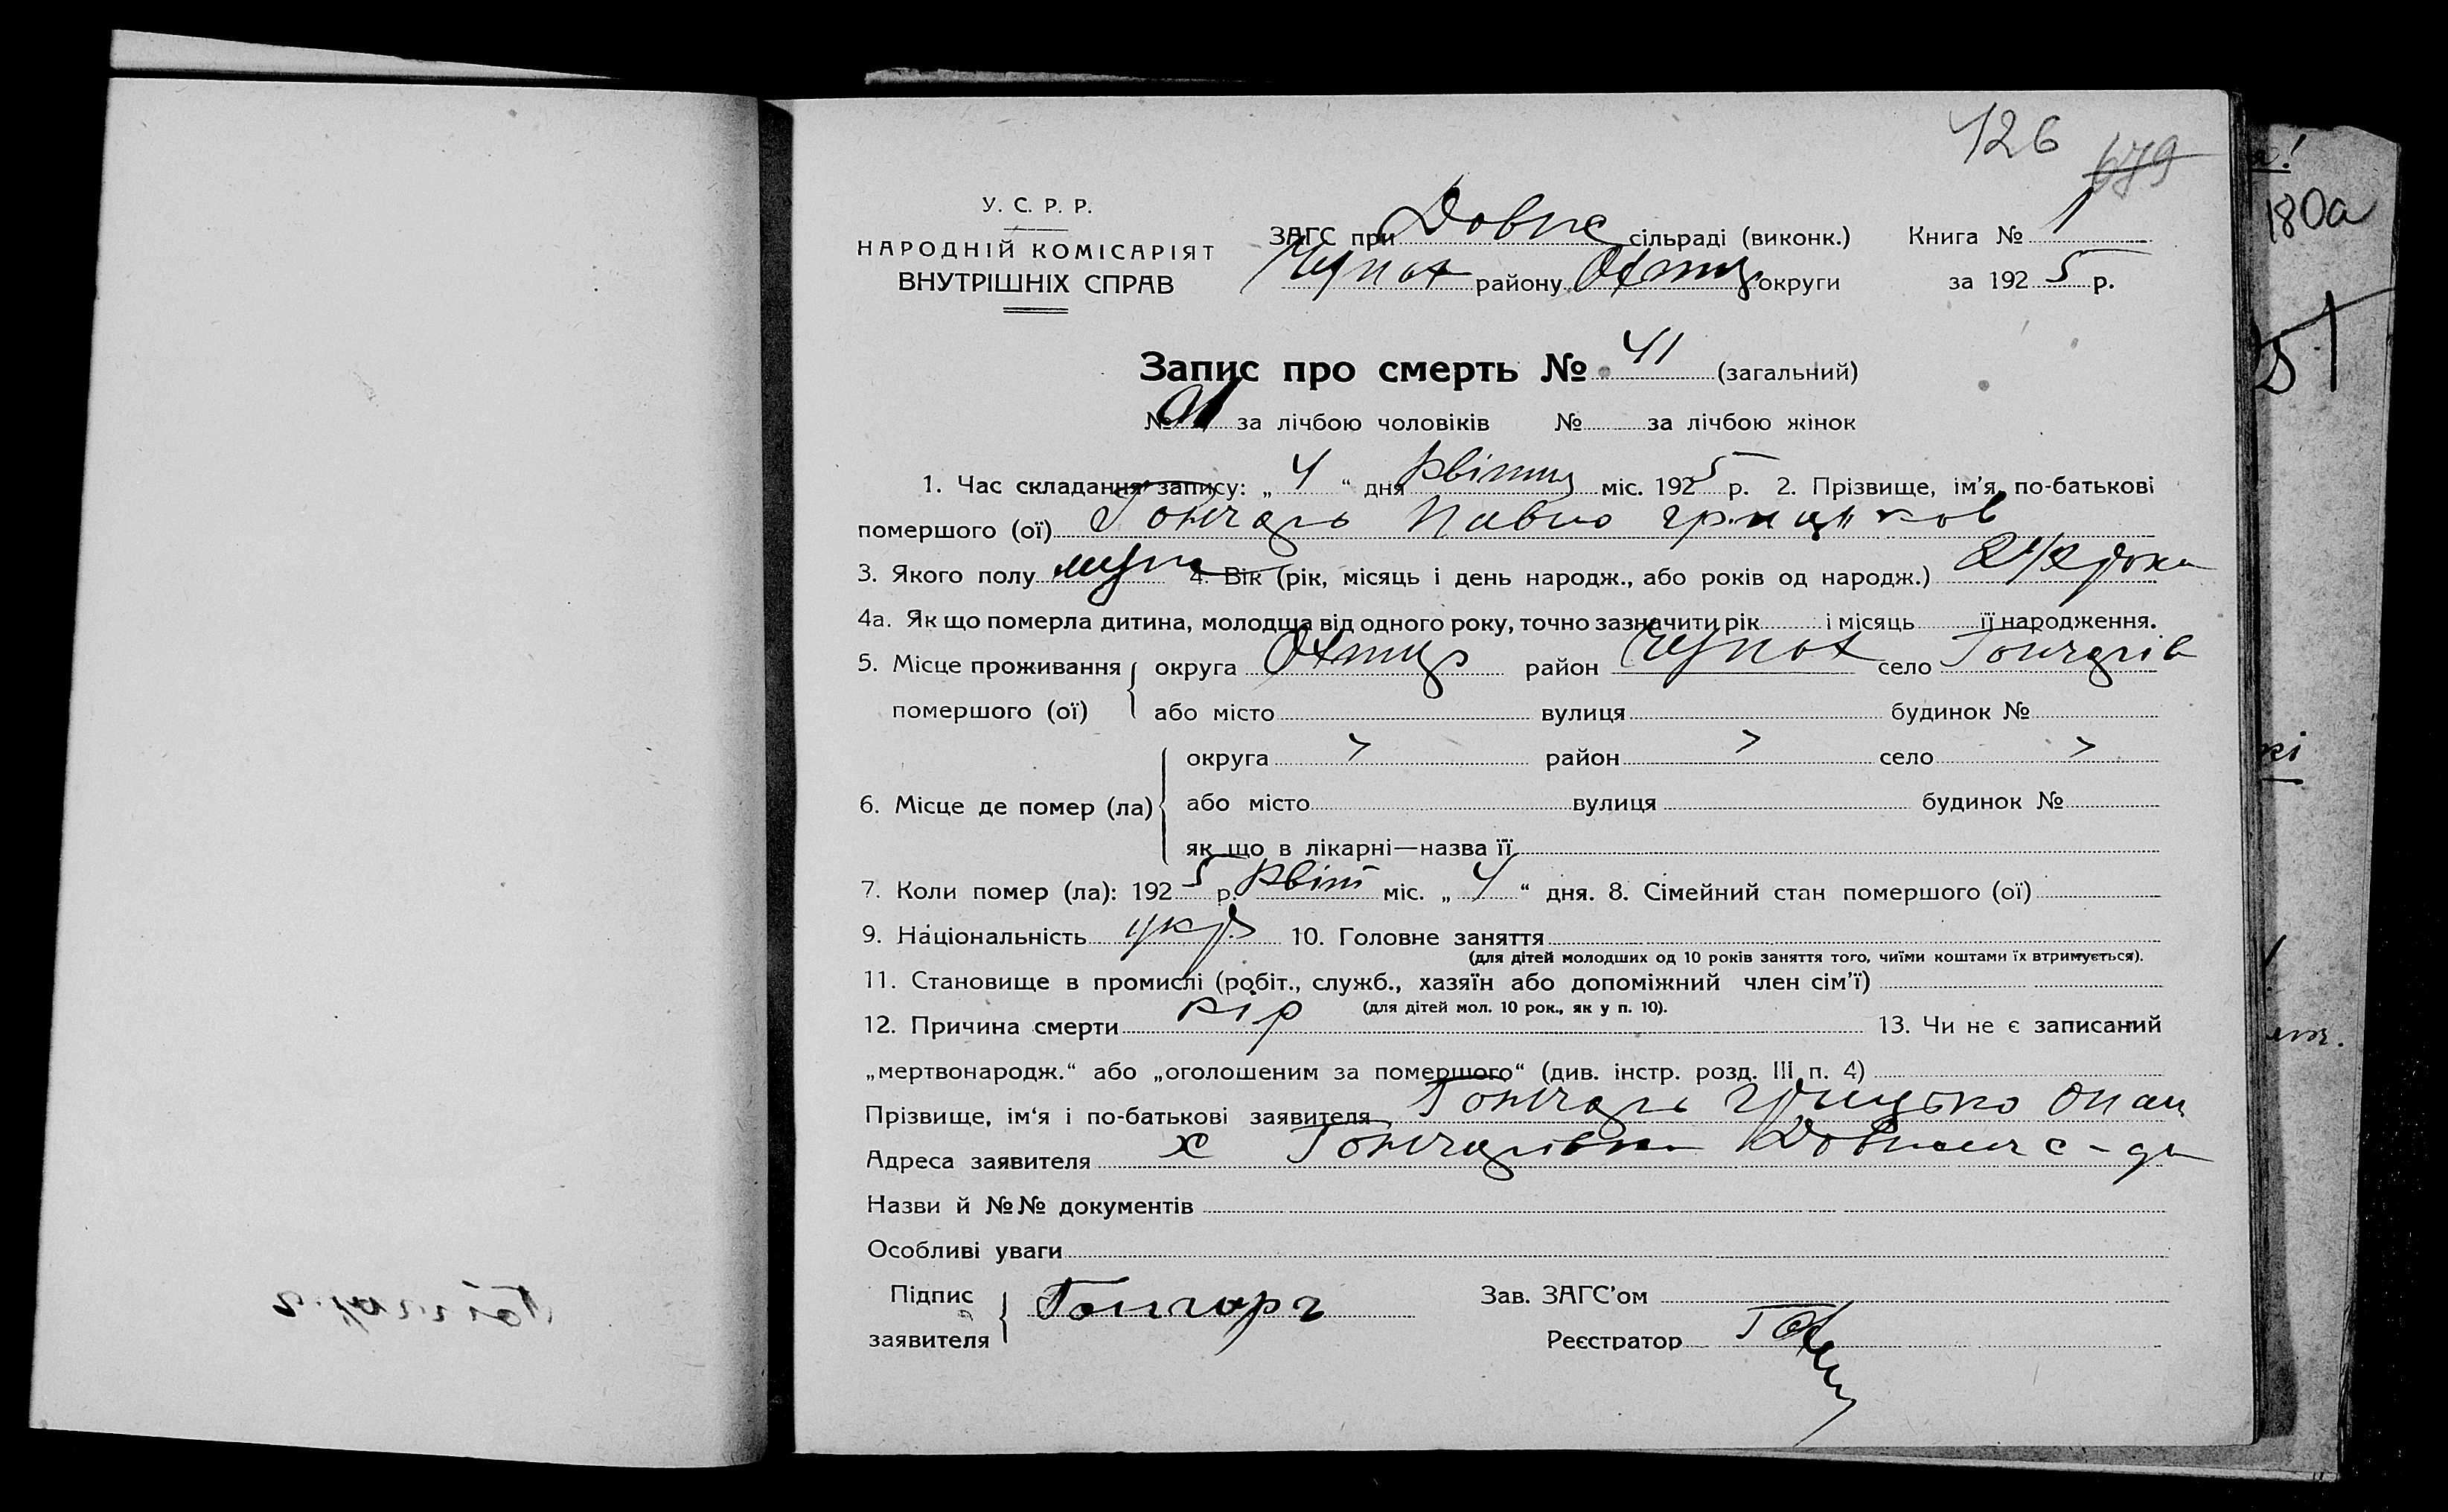 126 679
У. С. Р. Р.
НАРОДНІЙ КОМІСАРІЯТ
ВНУТРІШНІХ СПРАВ
ЗАГС при Довж сільраді (виконк.) Книга № 1
Чупах району Охтир округи за 1925 р.
Запис про смерть № 41 (загальний)
№ 21 за лічбою чоловіків № за лічбою жінок
1. Час складання запису: „4“ дня Квітня міс. 1925 р. 2. Прізвище, ім'я, по-батькові
помершого (ої) Гончарь Павло Грицьков
3. Якого полу муж 4. Вік (рік, місяць і день народж., або років од народж.) 2 1/2 роки
4а. Як що померла дитина, молодща від одного року, точно зазначити рік і місяць її народження.
5. Місце проживання округа Охтир район Чупах село Гончарів
помершого (ої) або місто вулиця будинок №
округа район село
6. Місце де помер (ла) або місто вулиця будинок №
як що в лікарні—назва її
7. Коли помер (ла): 1925 р. Квіт міс. „4“ дня. 8. Сімейний стан помершого (ої)
9. Національність укр 10. Головне заняття
(для дітей молодших од 10 років заняття того, чиїми коштами їх втримується).
11. Становище в промислі (робіт., служб., хазяїн або допоміжний член сім'ї)
(для дітей мол. 10 рок., як у п. 10).
12. Причина смерти кір 13. Чи не є записаний
„мертвонародж.“ або „оголошеним за помершого“ (див. інстр. розд. III п. 4)
Прізвище, ім'я і по-батькові заявителя Гончарь Грицько Опан
Адреса заявителя х Гончарівка с-ди
Назви й №№ документів
Особливі уваги
Підпис Гончарь Зав. ЗАГС'ом
заявителя Реєстратор
180а